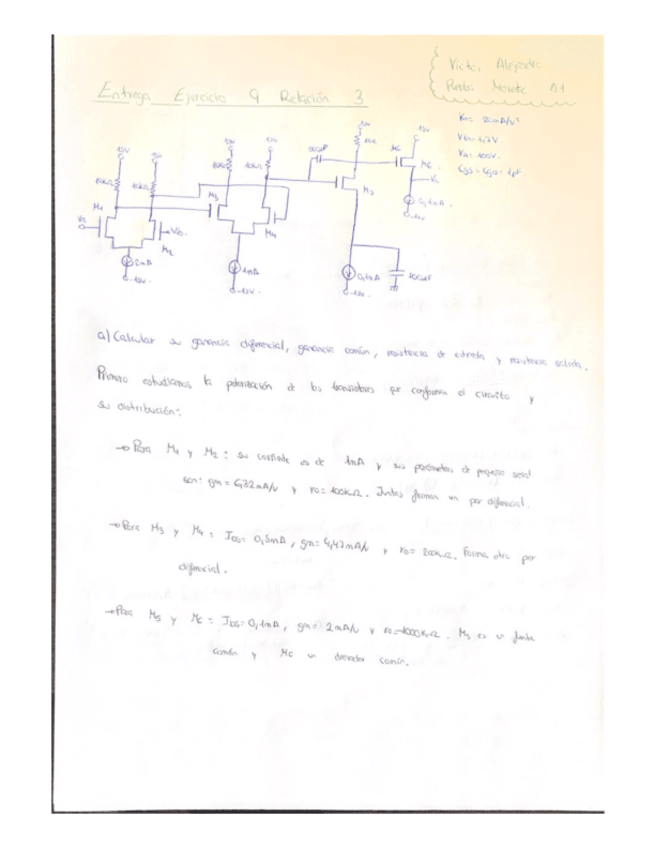 Entrega Ejercicio 9 Relación 3
Víctor Alejandro
A1
12V
12V
10kΩ
10kΩ
M1
M2
2mA
-12V
M3
M4
1mA
-12V
M5
0,1mA
-12V
M6
12V
0,1mA
a) Calcular su ganancia diferencial, ganancia común, resistencia de entrada y resistencia salida.
Primero estudiamos la polarización de los transistores que conforman el circuito y
su distribución:
→ Para M1 y M2 : su corriente es de 1mA y sus parámetros de pequeña señal
son: gm = 6,32mA/V y ro = 100kΩ. Juntos forman un par diferencial.
→ Para M3 y M4 : IDS = 0,5mA, gm = 4,47mA/V y ro = 200kΩ. Forma otro par
diferencial.
→ Para M5 y M6 : IDS = 0,1mA, gm = 2mA/V y ro = 1000kΩ. M5 es un fuente
común y M6 un drenador común.